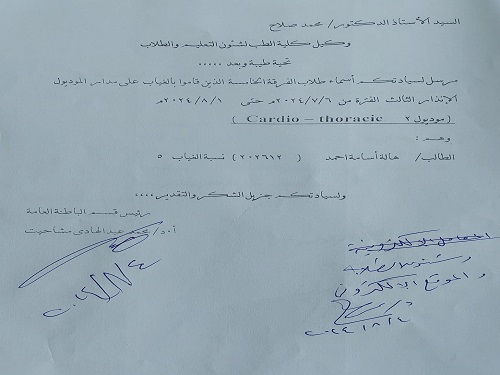 السيد الأستاذ الدكتور/ محمد صلاح
وكيل كلية الطب لشئون التعليم والطلاب
تحية طيبة وبعد .....
مرسل لسيادتكم أسماء طلاب الفرقة الخامسة الذين قاموا بالغياب على مدار الموديول
الإنذار الثالث الفترة من ٢٠٢٤/٧/٦م حتى ٢٠٢٤/٨/١م
( موديول ٢ Cardio – thoracic )
وهم :
الطالب/ هالة أسامة احمد ( ٢٠٢٦١٢ ) نسبة الغياب ٥
ولسيادتكم جزيل الشكر والتقدير ....
رئيس قسم الباطنة العامة
أ.د/ محمد عبدالهادى مشاحيت
٢٠٢٤/٨/٤
شئون الطلابية
والموقع الإلكترونى
٢٠٢٤/٨/٤